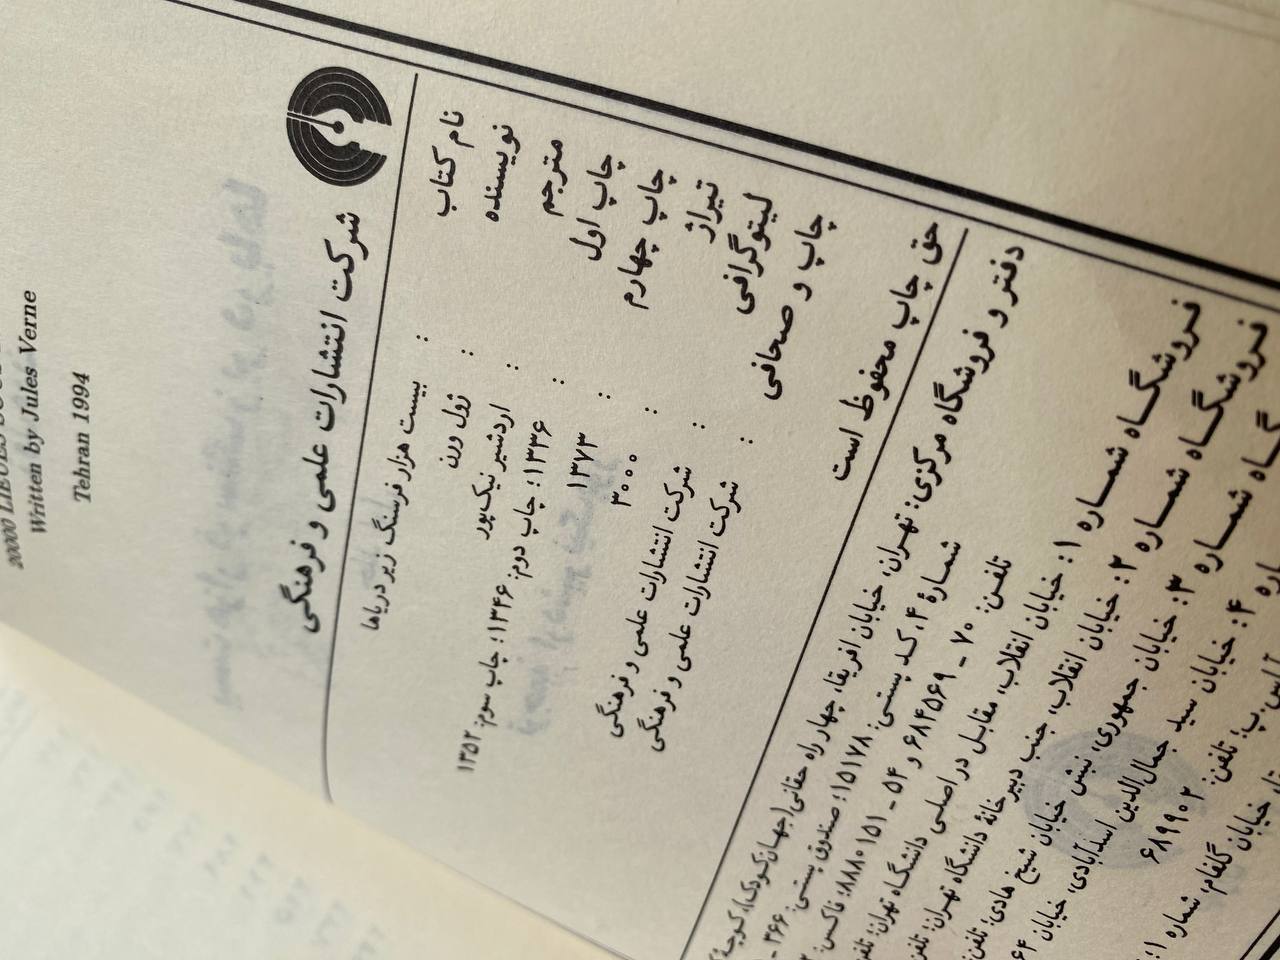 Written by Jules Verne
Tehran 1994
شرکت انتشارات علمی و فرهنگی
نام کتاب : بیست هزار فرسنگ زیر دریاها
نویسنده : ژول ورن
مترجم : اردشیر نیک‌پور
چاپ اول : ۱۳۳۶؛ چاپ دوم: ۱۳۴۶؛ چاپ سوم: ۱۳۵۲
چاپ چهارم : ۱۳۷۳
تیراژ : ۳۰۰۰
لیتوگرافی : شرکت انتشارات علمی و فرهنگی
چاپ و صحافی : شرکت انتشارات علمی و فرهنگی
حق چاپ محفوظ است
دفتر و فروشگاه مرکزی: تهران، خیابان افریقا، چهار راه حقانی (جهان کودک)، کوچهٔ
شمارهٔ ۴، کد پستی: ۱۵۱۷۸؛ صندوق پستی: ۳۶۶ -
تلفن: ۷۰ - ۶۸۴۵۶۹ و ۵۴ - ۸۸۸۰۱۵۱؛ فاکس:
فروشگاه شماره ۱: خیابان انقلاب، مقابل در اصلی دانشگاه تهران؛
فروشگاه شماره ۲: خیابان انقلاب، جنب دبیرخانهٔ دانشگاه تهران؛
شماره ۳: خیابان جمهوری، نبش خیابان شیخ هادی؛ تلفن:
۴: خیابان سید جمال‌الدین اسدآبادی، خیابان ۶۴
تلفن: ۶۸۹۹۰۲
خیابان گلفام، شماره ۱؛